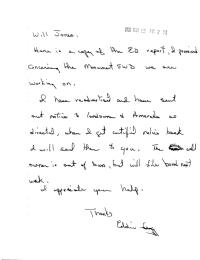 Will Jones:
Here is a copy of the ED report, I proved
concerning the Monument SWD we are
working on.
I have readvertised and have sent
out notice to landowner & Amerada as
directed, when I get certified notice back
I will send them to you. The well
owner is out of town, but will be back next
week.
I appreciate your help.
Thanks
Eddie